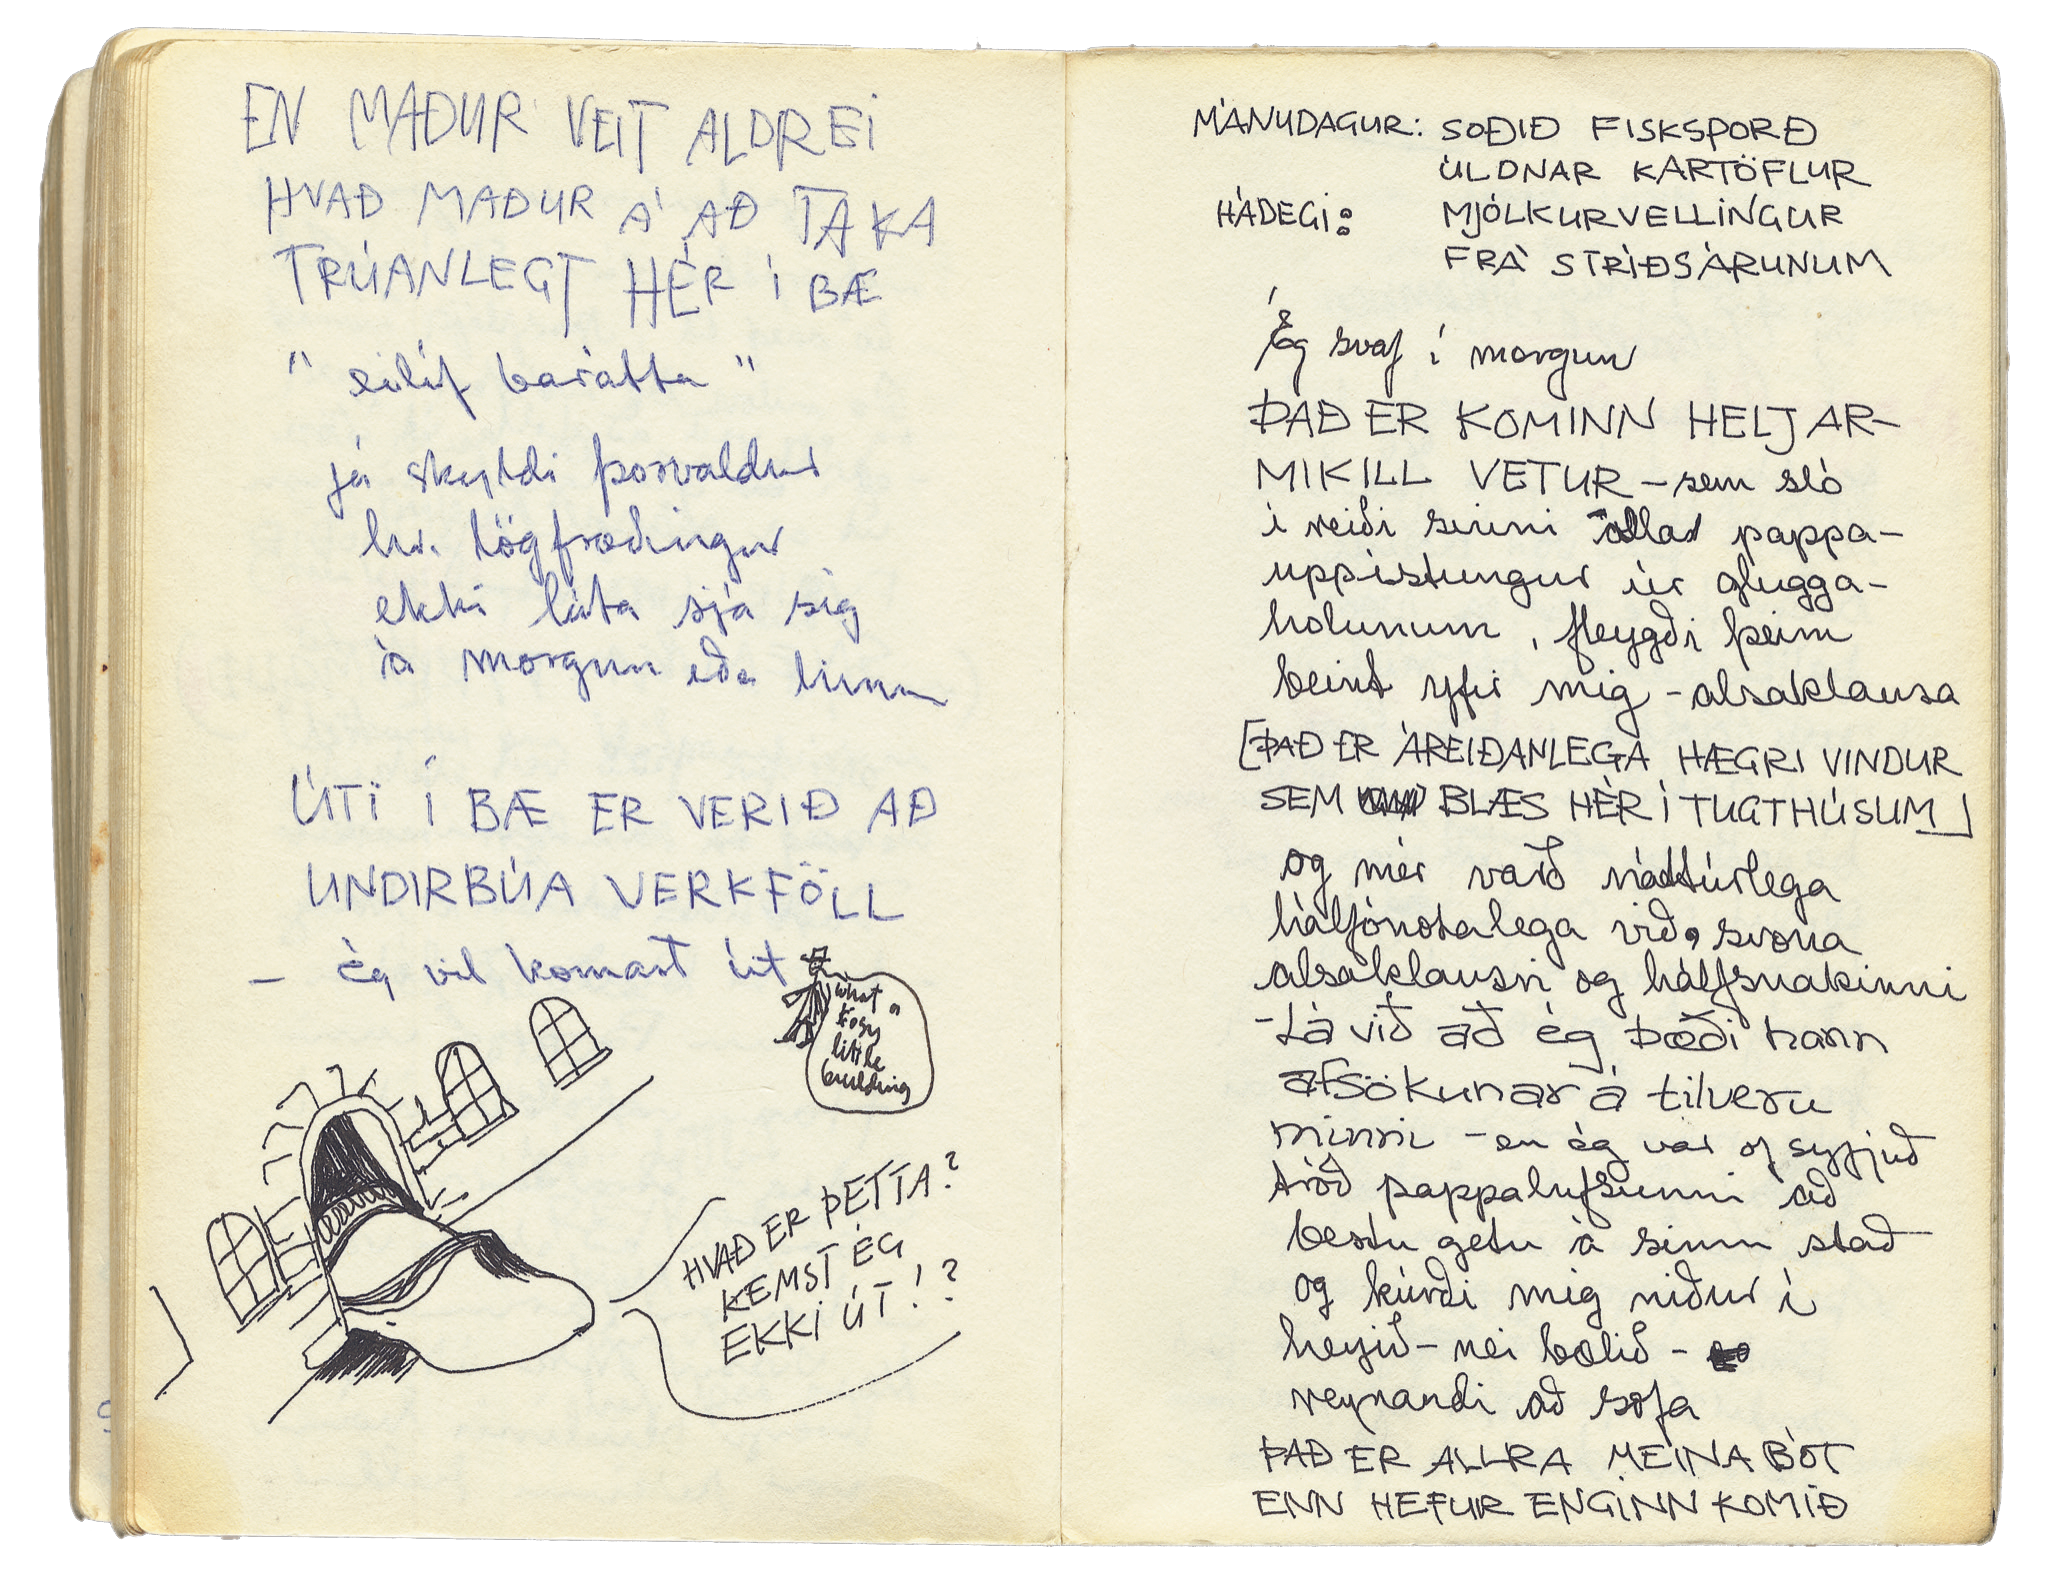 EN MAÐUR VEIT ALDREI
HVAÐ MAÐUR Á AÐ TAKA
TRÚANLEGT HÉR Í BÆ
"eilíf barátta"
já skyldi þorvaldur
hr. lögfræðingur
ekki láta sjá sig
á morgun eða hinn
ÚTI Í BÆ ER VERIÐ AÐ
UNDIRBÚA VERKFÖLL
– ég vil komast út
what a
cosy
little
building
HVAÐ ER ÞETTA?
KEMST ÉG
EKKI ÚT!?
MÁNUDAGUR: SOÐIÐ FISKSPORÐ
ÚLDNAR KARTÖFLUR
HÁDEGI: MJÓLKURVELLINGUR
FRÁ STRÍÐSÁRUNUM
Ég svaf í morgun
ÞAÐ ER KOMINN HELJAR-
MIKILL VETUR – sem sló
í reiði sinni pappa-
uppistungur úr glugga-
holunum, fleygði þeim
beint yfir mig – alsaklausa
[ÞAÐ ER ÁREIÐANLEGA HÆGRI VINDUR
SEM BLÆS HÉR Í TUGTHÚSUM]
og mér varð náttúrlega
hálfónotalega við, svona
alsaklausri og hálfsnakinni
– Lá við að ég bæði hann
afsökunar á tilveru
minni – en ég var of syfjuð
tróð pappalufsunni að
bestu getu á sinn stað
og kúrði mig niður í
heyið – nei bælið –
reynandi að sofa
ÞAÐ ER ALLRA MEINA BÓT
ENN HEFUR ENGINN KOMIÐ